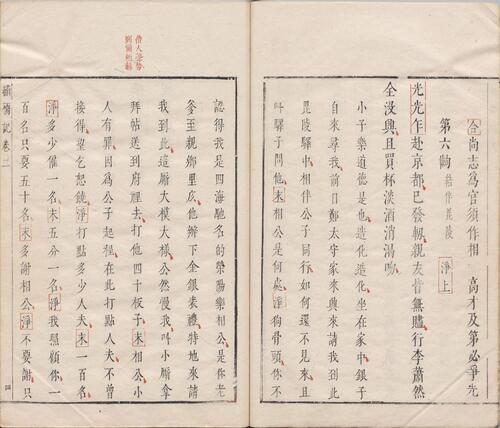 合尚志為官須作相　高才及第必爭先
第六齣　結伴毘陵　淨上
光光乍赴京都已發軔親友昔無贐行李蕭然
全沒興且買杯淡酒消渴吻
小子樂道德是也造化造化坐在家中銀子
自來尋我前日鄭太守家來興來請我到此
毘陵驛中相伴公子同行如何還不見來且
叫驛子問他末相公是何處淨狗骨頭你不
借人聲勢
認得我是四海馳名的滎陽樂相公是你老
爹至親鄉里庅他辦下金銀裘禮特地來請
我到此這厮大模大樣公然慢我叫小厮拿
拜帖送到府裡去打他四十板子末相公小
人有罪因為公子起程在此打點人夫不曾
接得望乞恕饒淨打點多少人夫末一百名
淨多少僱一名末五分一名淨我恩顧你一
百名只要五十名末多謝相公淨不要謝只
繡襦記卷二　四